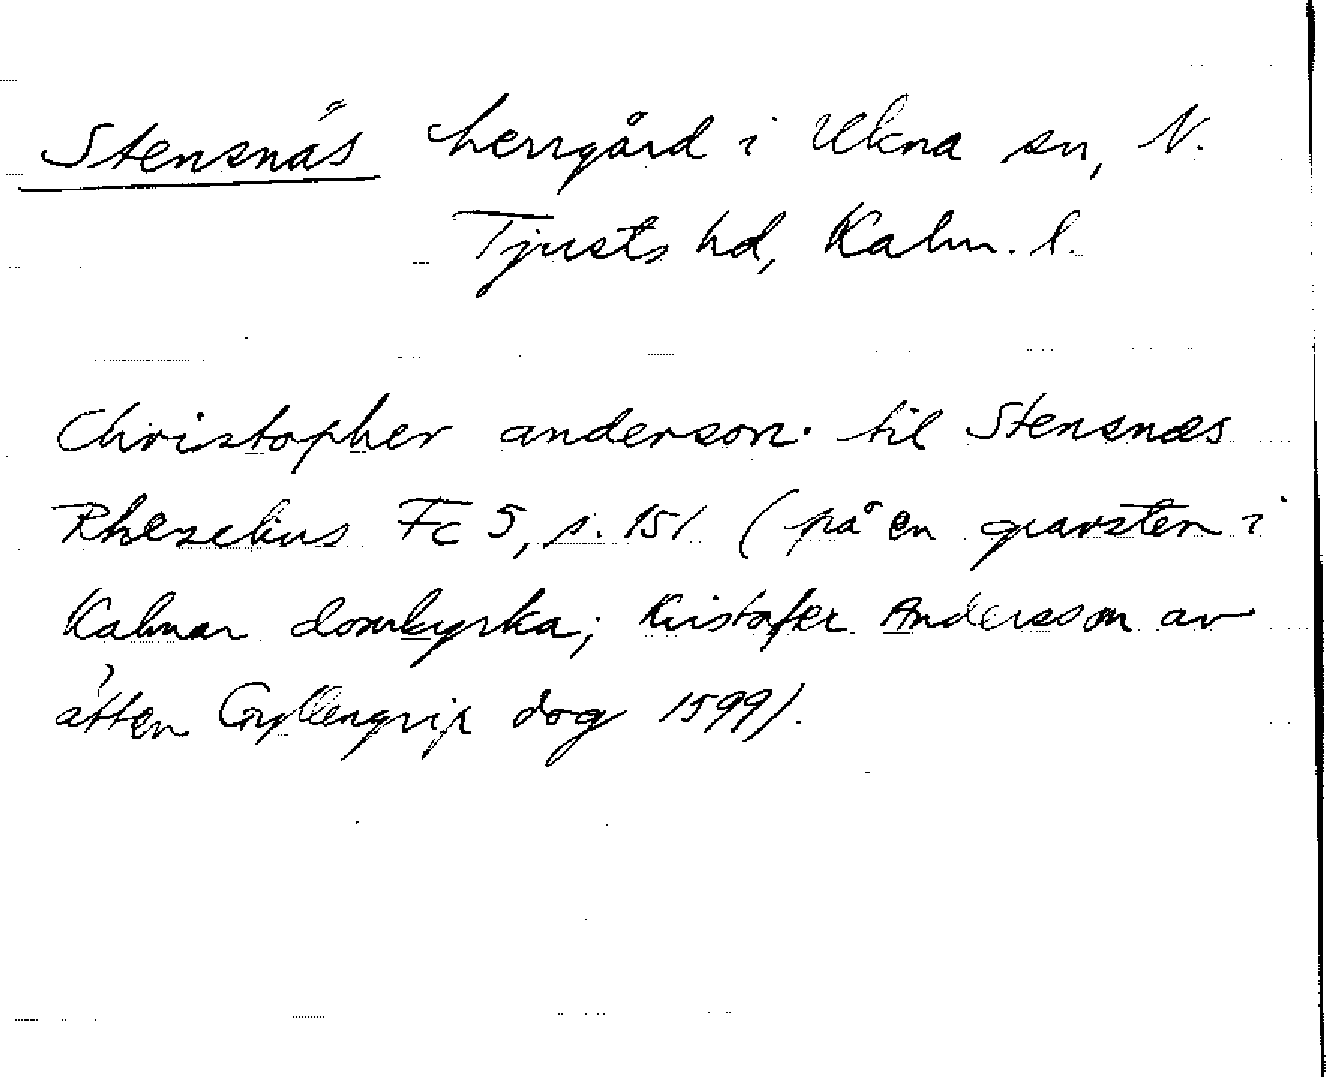 Stensnäs herrgård i Ukna sn, N.
Tjusts hd, Kalm. l.
Christopher anderson. til Stensnæs
Rhezelius Fc 5, s. 151 (på en gravsten i
Kalmar domkyrka; Kristofer Andersson av
ätten Gyllengrip dog 1599).